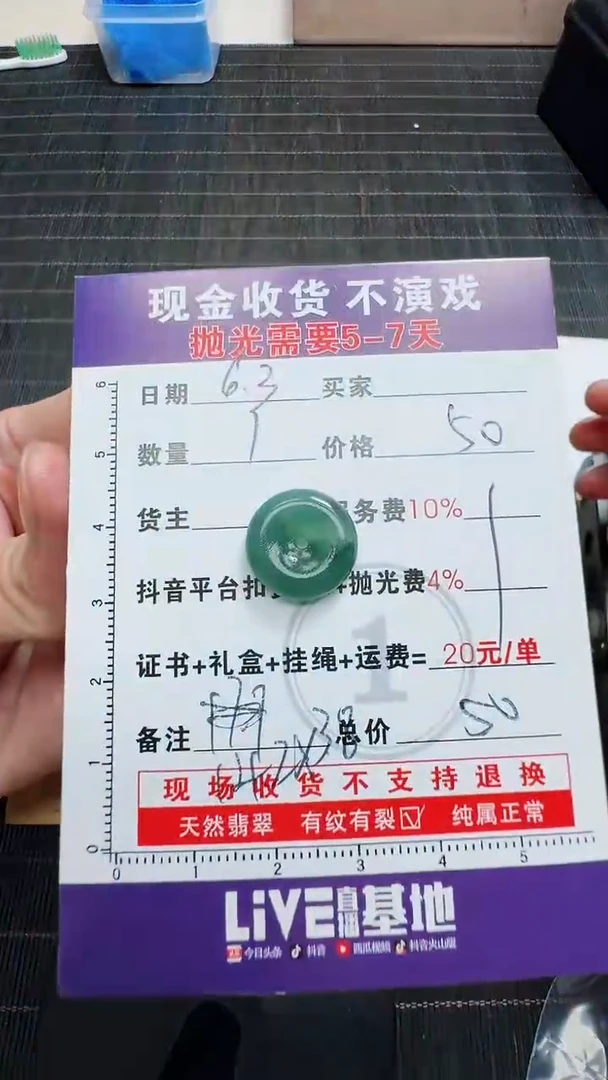 现金收货 不演戏
抛光需要5-7天
日期 6.3 买家
数量 1 价格 50
货主 务费10%
抖音平台扣 +抛光费4%
证书+礼盒+挂绳+运费= 20元/单
1
备注 总价 50
现场收货不支持退换
天然翡翠 有纹有裂☑ 纯属正常
6
5
4
3
2
1
0
0 1 2 3 4 5
LiVE直播基地
今日头条 抖音 西瓜视频 抖音火山版